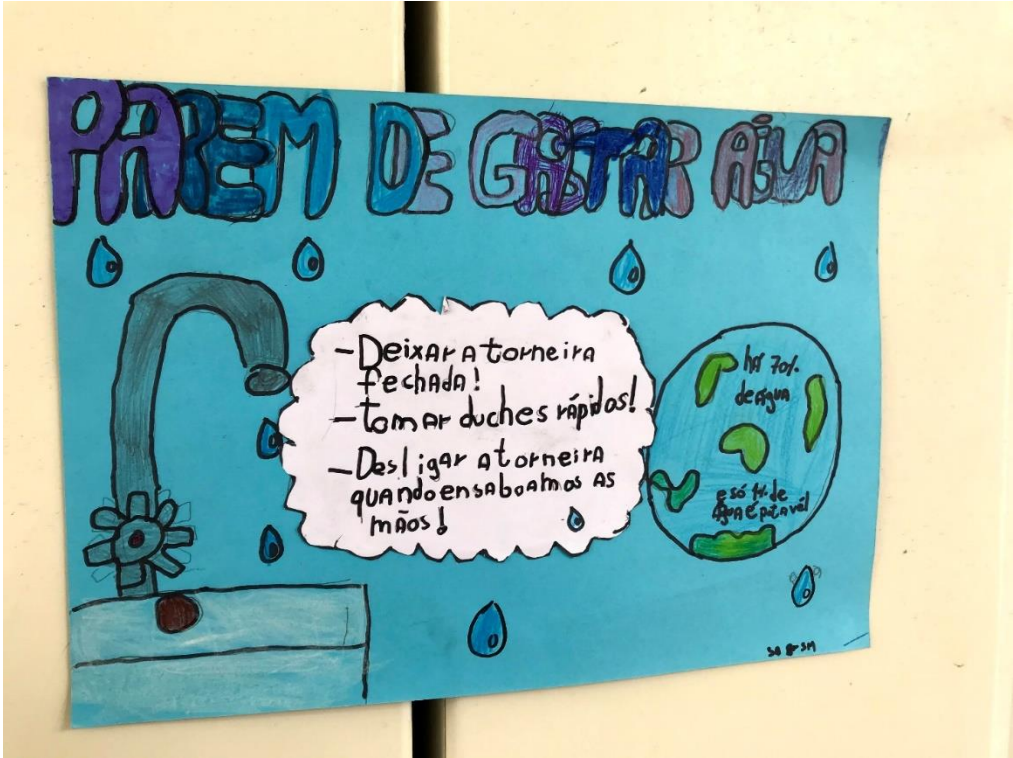 PAREM DE GASTAR ÁGUA
- Deixar a torneira
fechada!
- tomar duches rápidos!
- Desligar a torneira
quando ensaboamos as
mãos!
há 70%
de água
e só 1% de
água é potavél
SB & SM